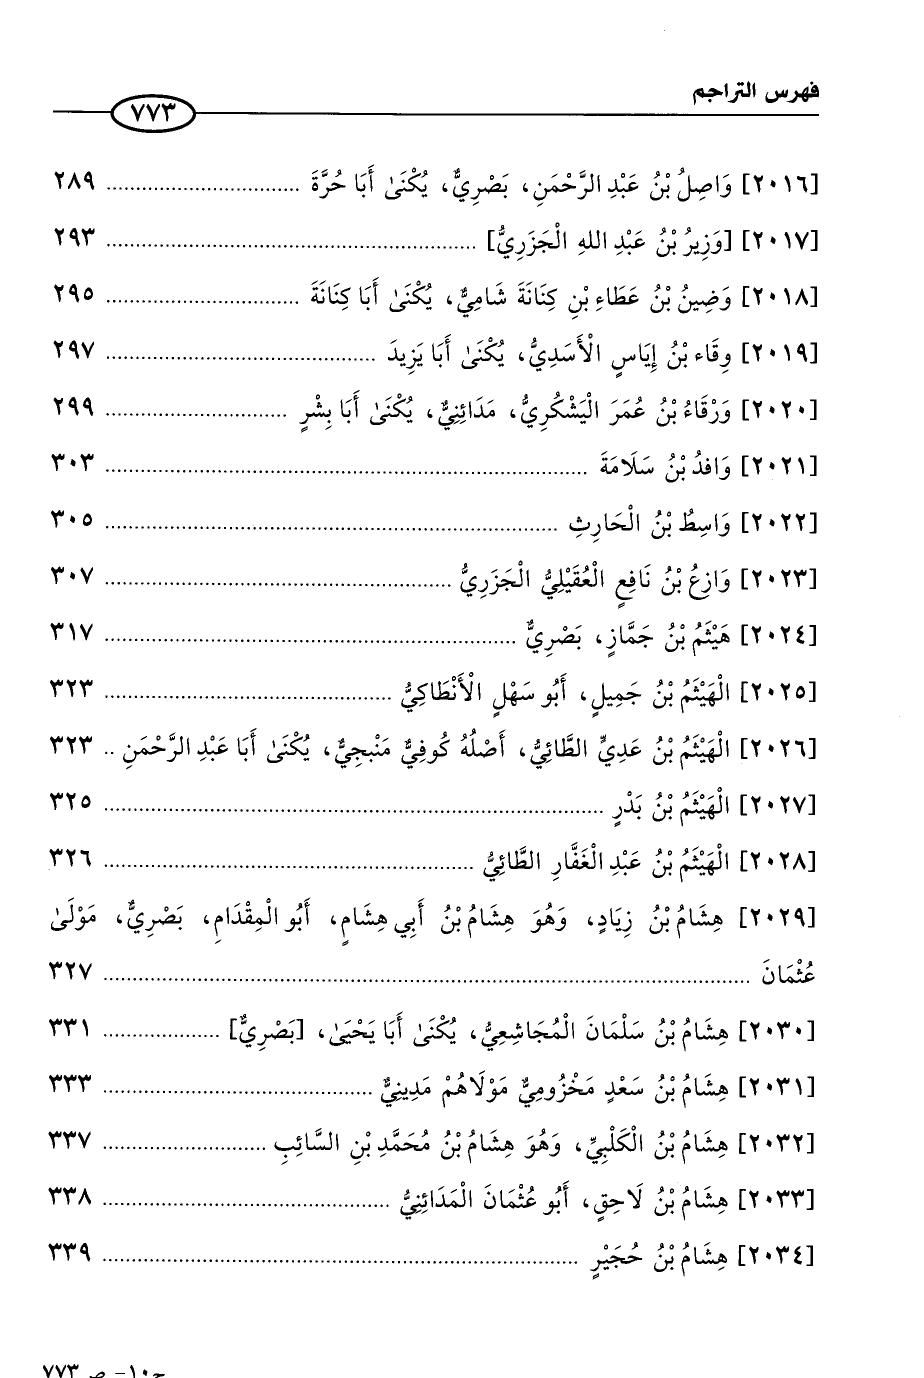 فهرس التراجم
٧٧٣
[٢٠١٦] وَاصِلُ بْنُ عَبْدِ الرَّحْمَنِ، بَصْرِيٌّ، يُكْنَىٰ أَبَا حُرَّةَ ................................ ٢٨٩
[٢٠١٧] [وَزِيرُ بْنُ عَبْدِ اللهِ الْجَزَرِيُّ] ................................ ٢٩٣
[٢٠١٨] وَضِينُ بْنُ عَطَاءِ بْنِ كِنَانَةَ شَامِيٌّ، يُكْنَىٰ أَبَا كِنَانَةَ ................................ ٢٩٥
[٢٠١٩] وِقَاء بْنُ إِيَاسٍ الْأَسَدِيُّ، يُكْنَىٰ أَبَا يَزِيدَ ................................ ٢٩٧
[٢٠٢٠] وَرْقَاءُ بْنُ عُمَرَ الْيَشْكُرِيُّ، مَدَائِنِيٌّ، يُكْنَىٰ أَبَا بِشْرٍ ................................ ٢٩٩
[٢٠٢١] وَافدُ بْنُ سَلَامَةَ ................................ ٣٠٣
[٢٠٢٢] وَاسِطُ بْنُ الْحَارِثِ ................................ ٣٠٥
[٢٠٢٣] وَازِعُ بْنُ نَافِعٍ الْعُقَيْلِيُّ الْجَزَرِيُّ ................................ ٣٠٧
[٢٠٢٤] هَيْثَمُ بْنُ جَمَّازٍ، بَصْرِيٌّ ................................ ٣١٧
[٢٠٢٥] الْهَيْثَمُ بْنُ جَمِيلٍ، أَبُو سَهْلٍ الْأَنْطَاكِيُّ ................................ ٣٢٣
[٢٠٢٦] الْهَيْثَمُ بْنُ عَدِيٍّ الطَّائِيُّ، أَصْلُهُ كُوفِيٌّ مَنْبِجِيٌّ، يُكْنَىٰ أَبَا عَبْدِ الرَّحْمَنِ .. ٣٢٣
[٢٠٢٧] الْهَيْثَمُ بْنُ بَدْرٍ ................................ ٣٢٥
[٢٠٢٨] الْهَيْثَمُ بْنُ عَبْدِ الْغَفَّارِ الطَّائِيُّ ................................ ٣٢٦
[٢٠٢٩] هِشَامُ بْنُ زِيَادٍ، وَهُوَ هِشَامُ بْنُ أَبِي هِشَامٍ، أَبُو الْمِقْدَامِ، بَصْرِيٌّ، مَوْلَىٰ
عُثْمَانَ ................................ ٣٢٧
[٢٠٣٠] هِشَامُ بْنُ سَلْمَانَ الْمُجَاشِعِيُّ، يُكْنَىٰ أَبَا يَحْيَىٰ، [بَصْرِيٌّ] ................................ ٣٣١
[٢٠٣١] هِشَامُ بْنُ سَعْدٍ مَخْزُومِيٌّ مَوْلَاهُمْ مَدِينِيٌّ ................................ ٣٣٣
[٢٠٣٢] هِشَامُ بْنُ الْكَلْبِيِّ، وَهُوَ هِشَامُ بْنُ مُحَمَّدِ بْنِ السَّائِبِ ................................ ٣٣٧
[٢٠٣٣] هِشَامُ بْنُ لَاحِقٍ، أَبُو عُثْمَانَ الْمَدَائِنِيُّ ................................ ٣٣٨
[٢٠٣٤] هِشَامُ بْنُ حُجَيْرٍ ................................ ٣٣٩
ج١٠- ص ٧٧٣